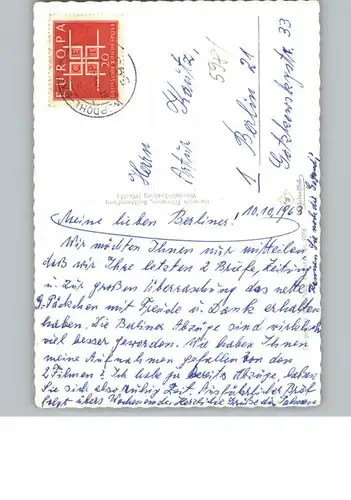 EUROPA
CEPT
20
DEUTSCHE BUNDESPOST
Herrn
Artur Kautz,
1 Berlin 21
Gotzkowskystr. 33
Meine lieben Berliner! 10.10.1963
Wir möchten Ihnen nur mitteilen
daß wir Ihre letzten 2 Briefe, Zeitung
u. zur großen Überraschung das nette
G. Päckchen mit Freude u. Dank erhalten
haben. Die Berliner Abzüge sind wirklich
viel besser geworden. Wie haben Ihnen
meine Aufnahmen gefallen von den
2 Filmen? Ich habe ja bereits Abzüge, haben
Sie sich also ruhig Zeit. Ausführlicher Brief
folgt übers Wochenende. Herzliche Grüße die